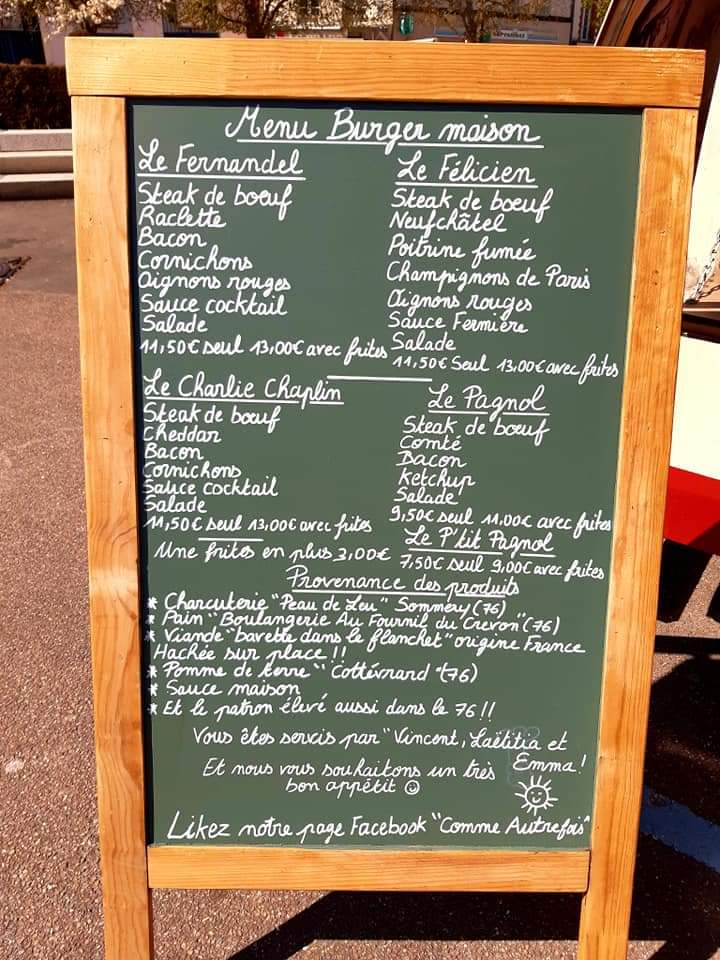 Menu Burger maison
Le Fernandel
Steak de bœuf
Raclette
Bacon
Cornichons
Oignons rouges
Sauce cocktail
Salade
11,50€ seul 13,00€ avec frites
Le Félicien
Steak de bœuf
Neufchâtel
Poitrine fumée
Champignons de Paris
Oignons rouges
Sauce Fermière
Salade
11,50€ Seul 13,00€ avec frites
Le Charlie Chaplin
Steak de bœuf
Cheddar
Bacon
Cornichons
Sauce cocktail
Salade
11,50€ seul 13,00€ avec frites
Une frites en plus 3,00€
Le Pagnol
Steak de bœuf
Comté
Bacon
Ketchup
Salade
9,50€ seul 11,00€ avec frites
Le P'tit Pagnol
7,50€ seul 9,00€ avec frites
Provenance des produits
* Charcuterie "Peau de Leu" Sommery (76)
* Pain "Boulangerie Au Fournil du Crevon" (76)
* Viande "bavette dans le flanchet" origine France
Hachée sur place !!
* Pomme de terre "Cottévrard" (76)
* Sauce maison
* Et le patron élevé aussi dans le 76 !!
Vous êtes servis par "Vincent, Laëtitia et
Emma !
Et nous vous souhaitons un très
bon appétit ☺
Likez notre page Facebook "Comme Autrefois"